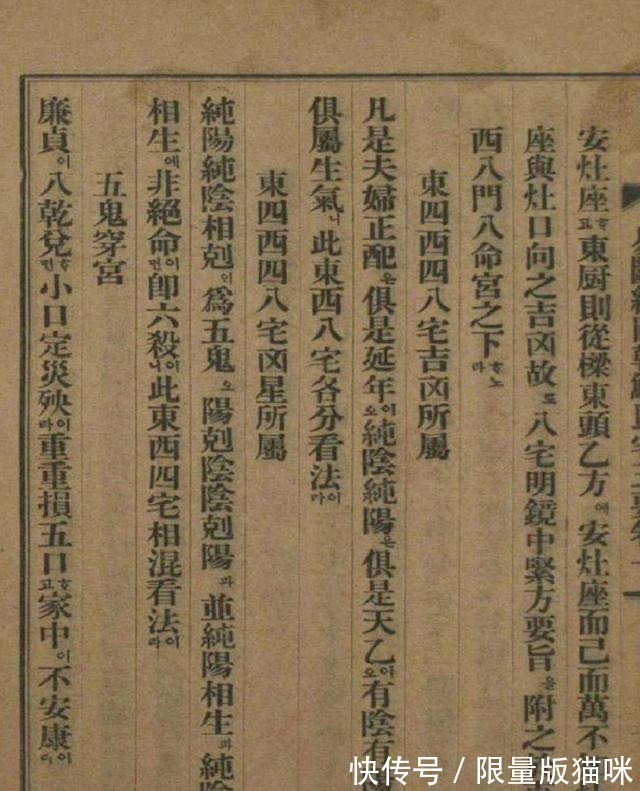 安灶座하고東厨則從樑東頭乙方에安灶座而已而萬不
座與灶口向之吉凶故로八宅明鏡中緊方要旨을附之
西八門八命宮之下하노라
東四西四八宅吉凶所屬
凡是夫婦正配은俱是延年이오純陰純陽은俱是天乙이오有陰有
俱屬生氣니此東西八宅各分看法이라
東四西四八宅凶星所屬
純陽純陰相剋이爲五鬼오陽剋陰陰剋陽과並純陽相生과純
相生에非絕命이면卽六殺이니此東西四宅相混看法이라
五鬼穿宮
廉貞이八乾兌하면小口定災殃이라重重損五口하고家中이不安康이
快传号 / 限量版猫咪